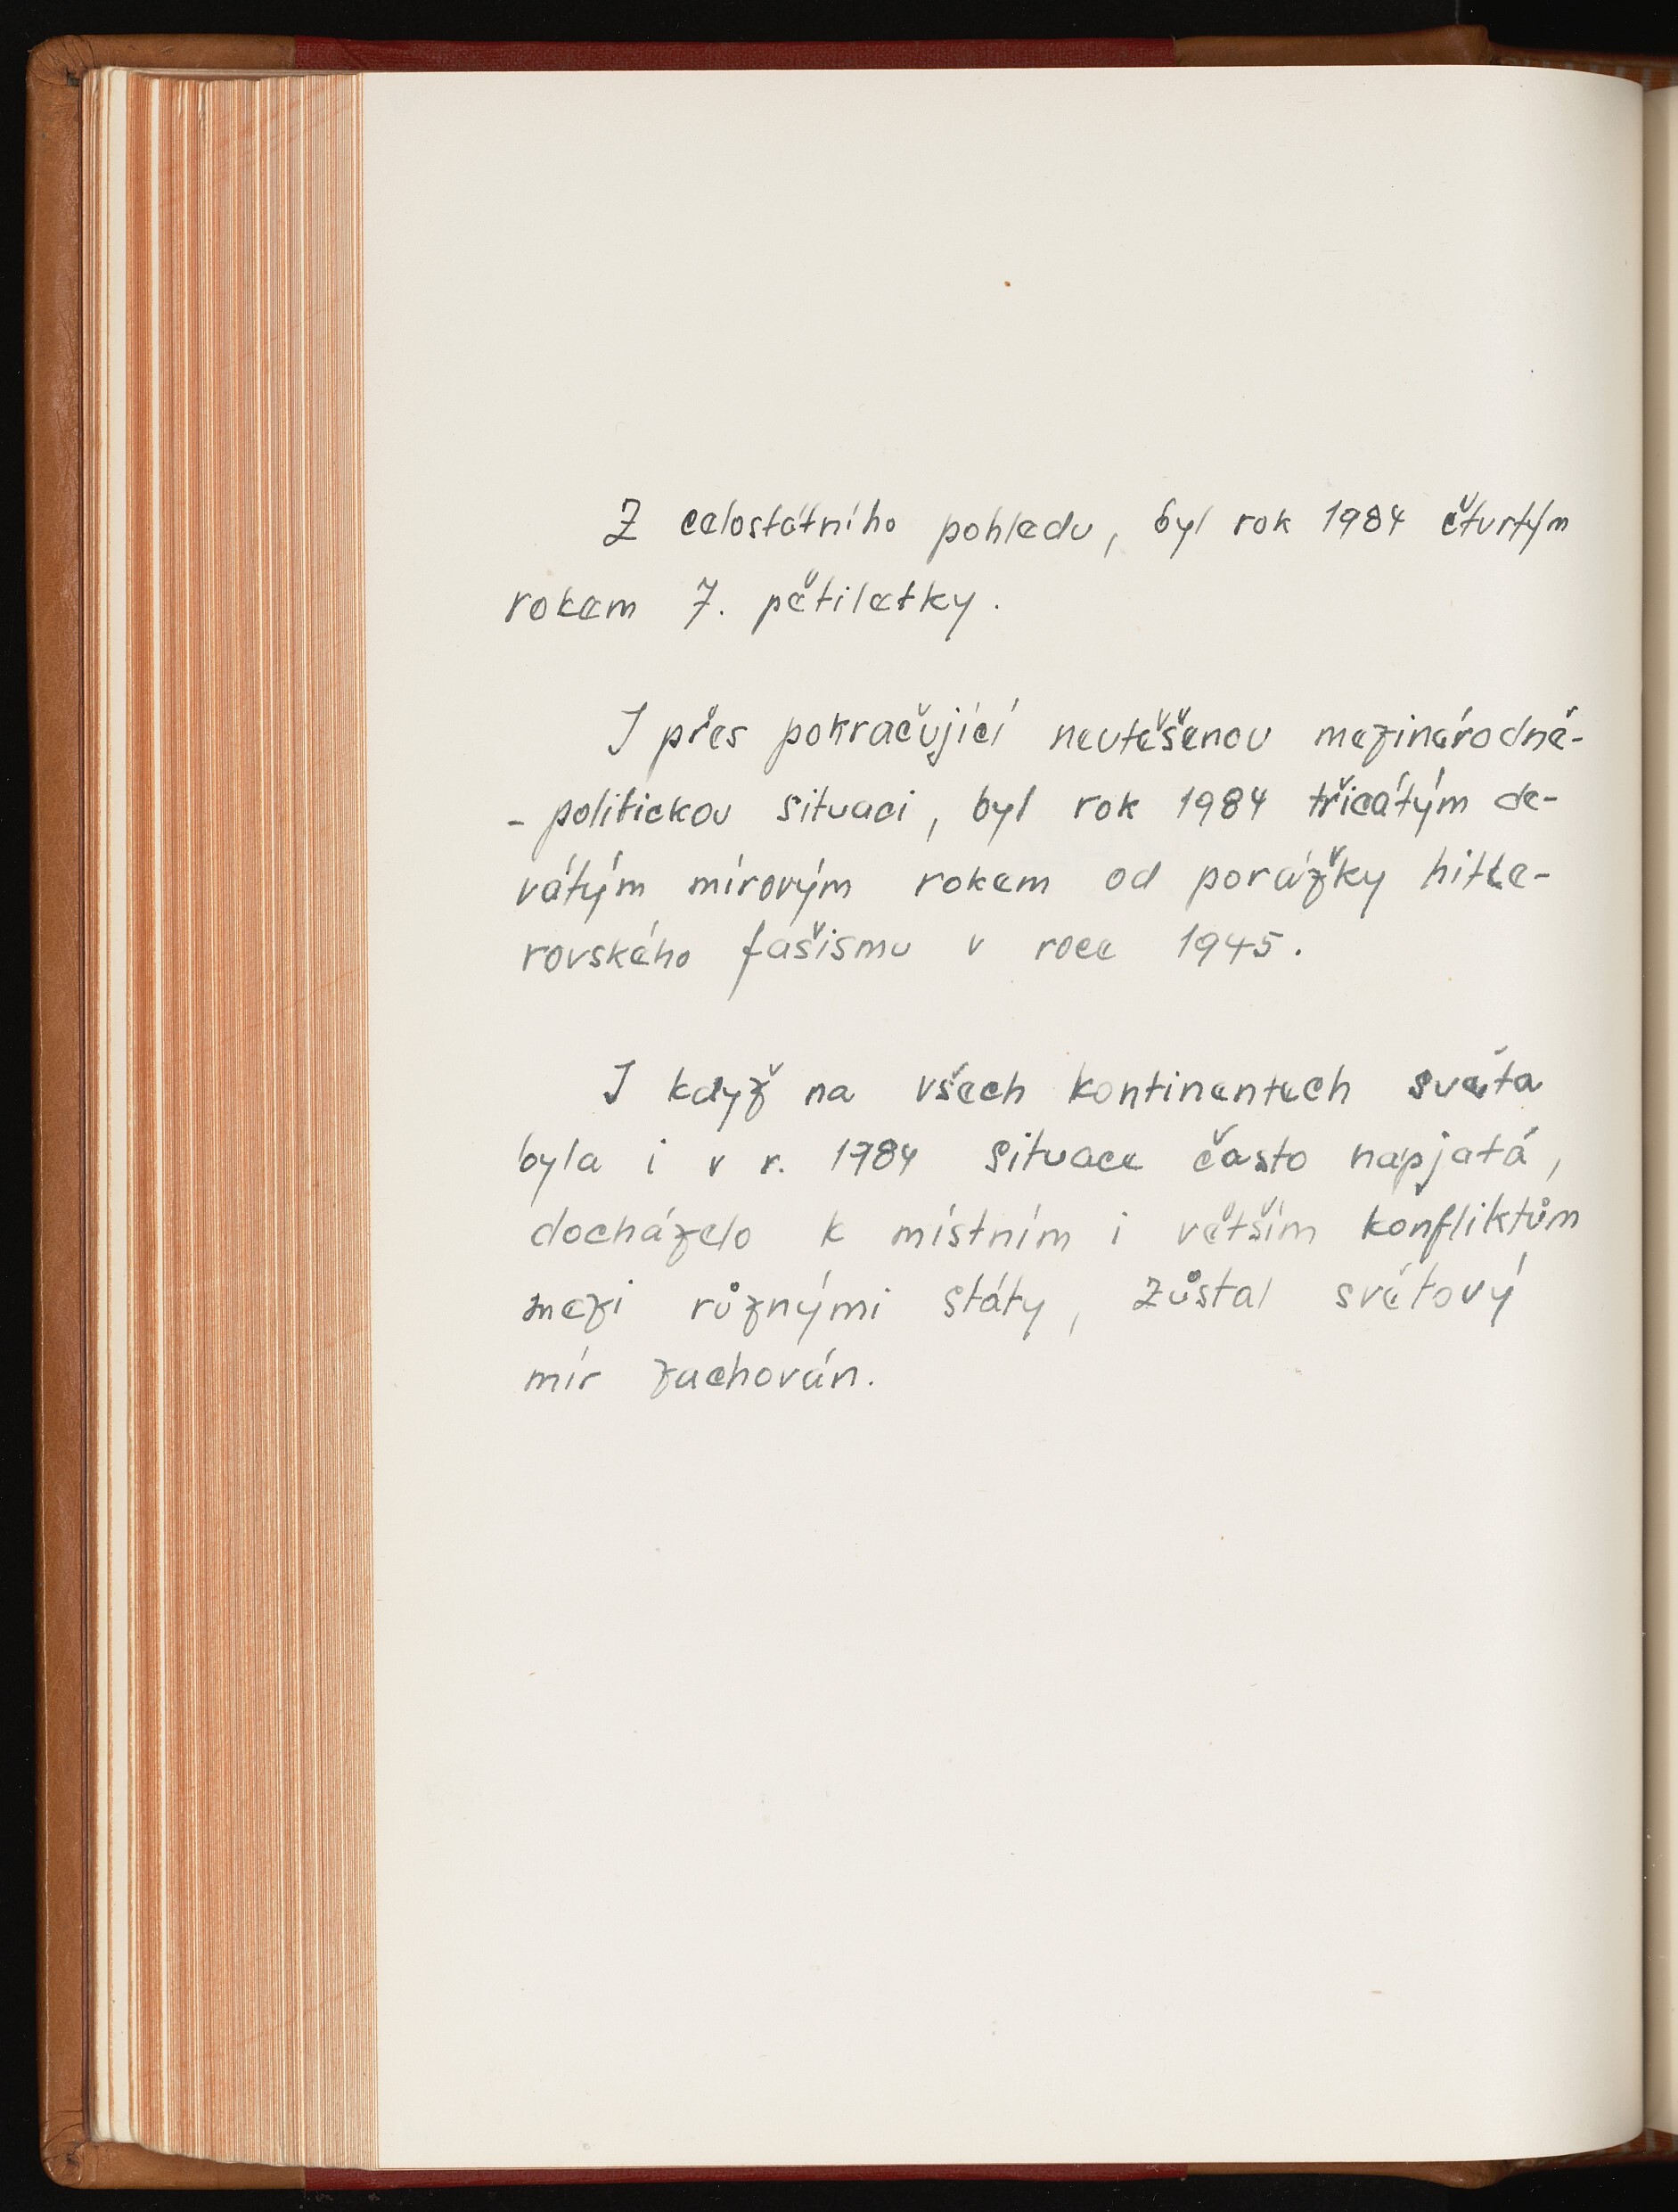 Z celostátního pohledu, byl rok 1984 čtvrtým
rokem 7. pětiletky.
I přes pokračující neutěšenou mezinárodně-
- politickou situaci, byl rok 1984 třicátým de-
vátým mírovým rokem od porážky hitle-
rovského fašismu v roce 1945.
I když na všech kontinentech světa
byla i v r. 1984 situace často napjatá,
docházelo k místním i větším konfliktům
mezi různými státy, zůstal světový
mír zachován.